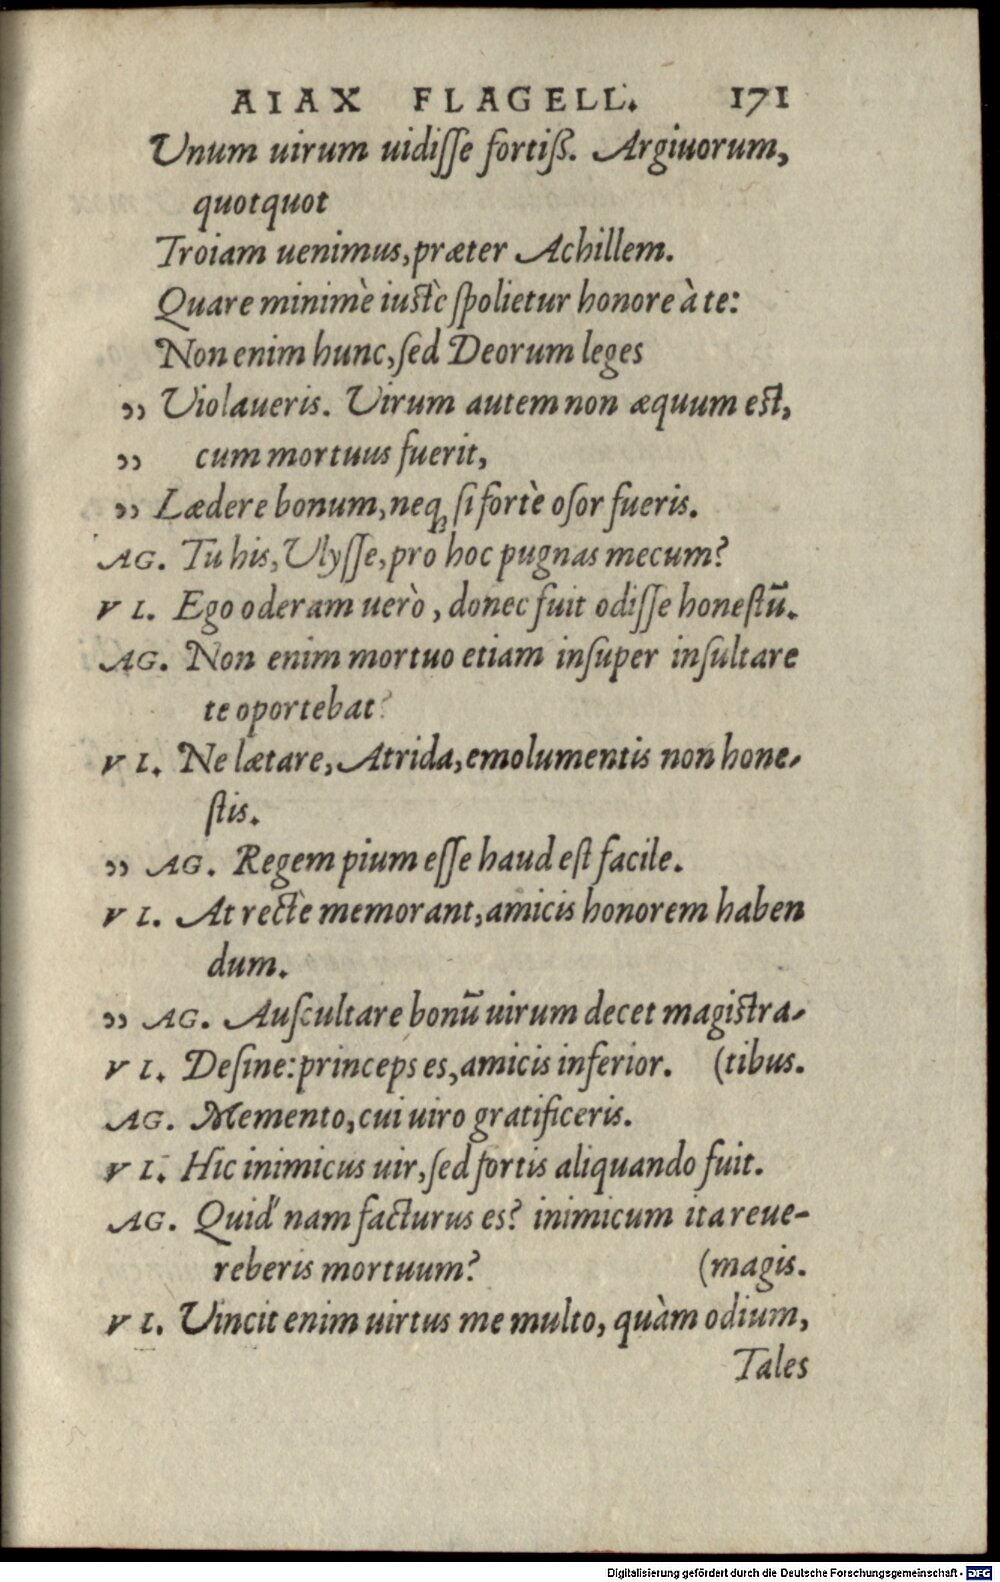 AIAX FLAGELL. 171
Unum uirum uidisse fortiß. Argiuorum,
quotquot
Troiam uenimus, præter Achillem.
Quare minimè iustè spolietur honore à te:
Non enim hunc, sed Deorum leges
,, Violaueris. Virum autem non æquum est,
,, cum mortuus fuerit,
,, Lædere bonum, neq; si fortè osor fueris.
AG. Tu his, Ulysse, pro hoc pugnas mecum?
V L. Ego oderam uerò, donec fuit odisse honestū.
AG. Non enim mortuo etiam insuper insultare
te oportebat?
V L. Ne lætare, Atrida, emolumentis non hone-
stis.
,, AG. Regem pium esse haud est facile.
V L. At rectè memorant, amicis honorem haben
dum.
,, AG. Auscultare bonū uirum decet magistra-
V L. Desine: princeps es, amicis inferior. (tibus.
AG. Memento, cui uiro gratificeris.
V L. Hic inimicus uir, sed fortis aliquando fuit.
AG. Quid nam facturus es? inimicum ita reue-
reberis mortuum? (magis.
V L. Vincit enim uirtus me multo, quàm odium,
Tales
Digitalisierung gefördert durch die Deutsche Forschungsgemeinschaft - DFG